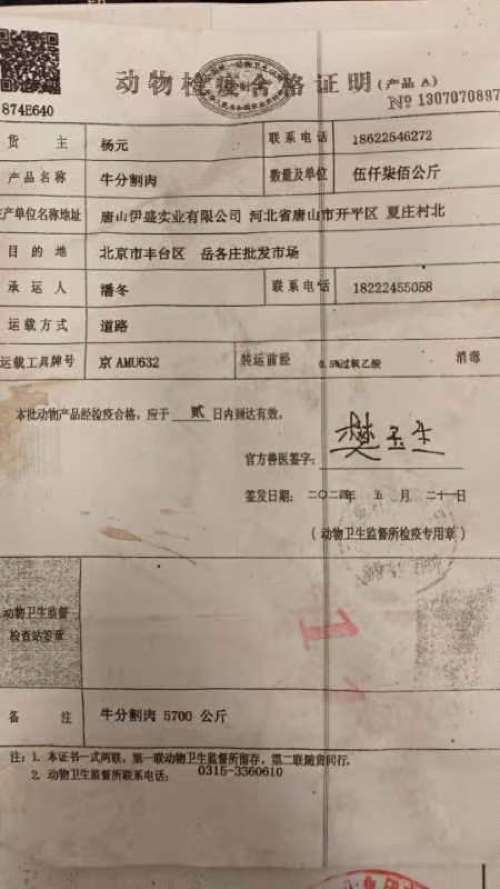 动物检疫合格证明(产品 A)
874E640
№ 1307070897
货 主 杨元 联系电话 18622546272
产品名称 牛分割肉 数量及单位 伍仟柒佰公斤
产单位名称地址 唐山伊盛实业有限公司 河北省唐山市开平区 夏庄村北
目 的 地 北京市丰台区 岳各庄批发市场
承 运 人 潘冬 联系电话 18222455058
运载方式 道路
运载工具牌号 京 AMU632 装运前经 0.5%过氧乙酸 消毒
本批动物产品经检疫合格,应于 贰 日内到达有效。
官方兽医签字:樊玉生
签发日期:二〇二四年 五 月 二十一日
(动物卫生监督所检疫专用章)
动物卫生监督
检查站签章
备 注 牛分割肉 5700 公斤
注:1. 本证书一式两联,第一联动物卫生监督所留存,第二联随货同行。
2. 动物卫生监督所联系电话: 0315-3360610